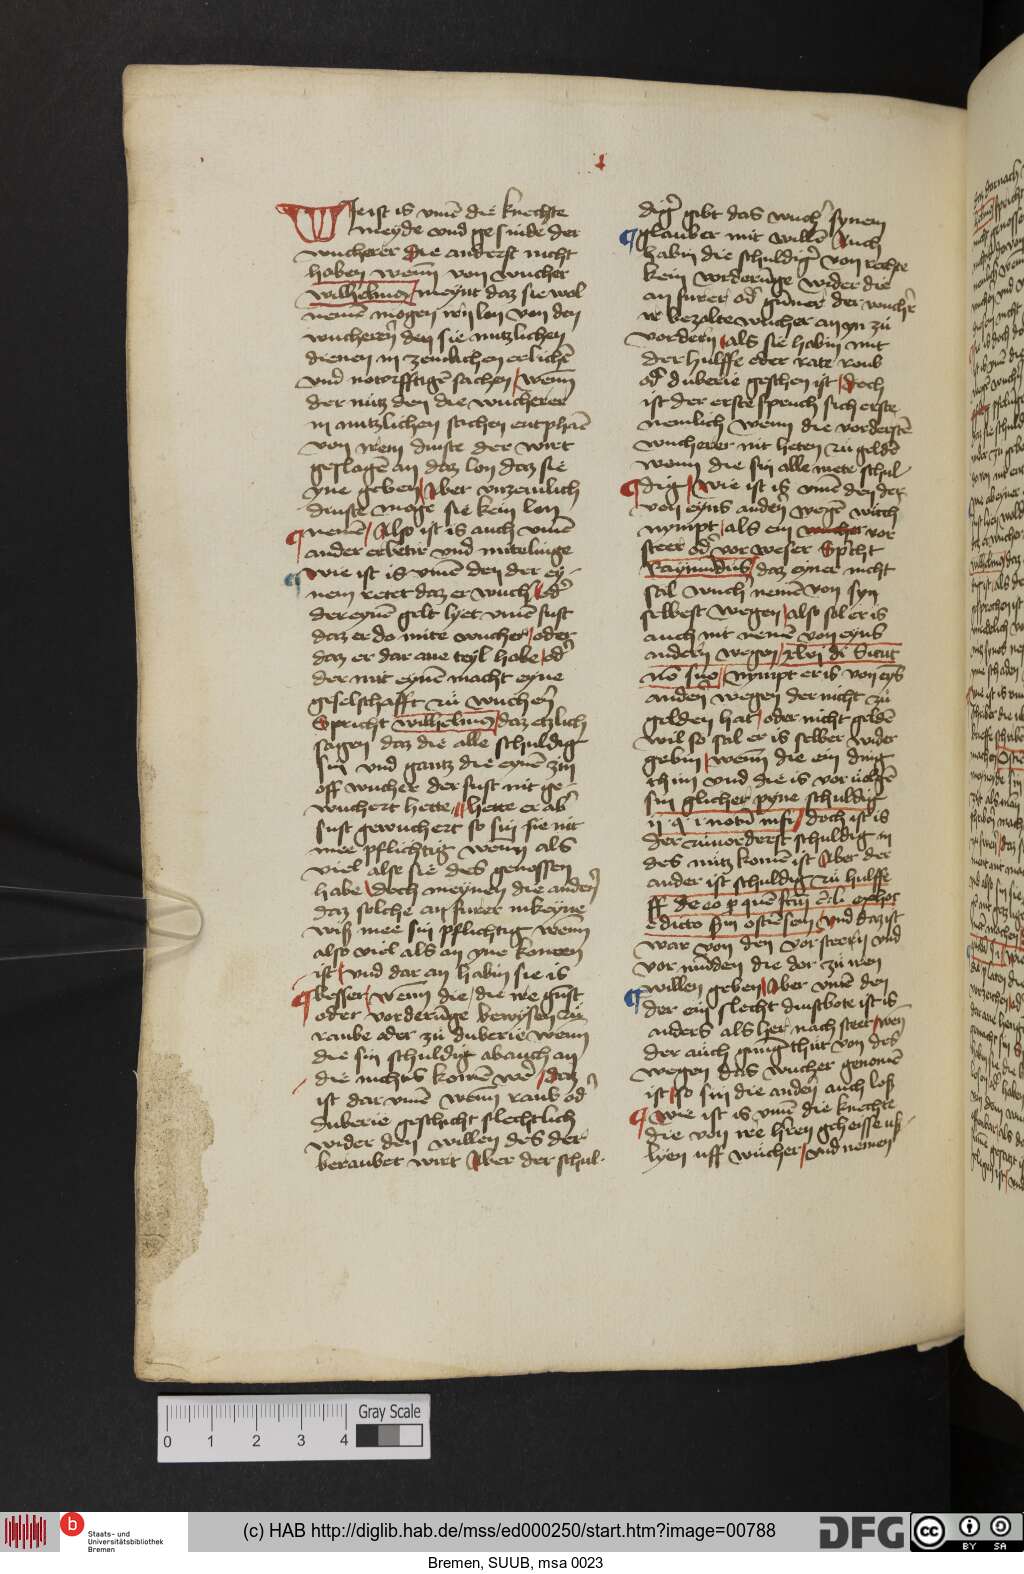 ı
Wie ist is vmē die knechte
meyde vnd gesinde der
wucherer die anderst nicht
haben wenn von wucher
wilhelmus / meynt daz sie wol
nemen mogen irn lon von den
wucherern den sie nutzlichen
dienen in zemlichen erlichē
vnd notorfftigē sachen / wenn
der nutz den die wucherer
in nutzlichen sachen entphaē
von irem dinste der wirt
geslagē an daz lon daz sie
yne geben / Aber vnzemlich
dinste moge sie kein lon
nemen / Also ist is auch vmē
ander erbetir vnd mitulinge
wie ist is vmē den der ey-
nem retet daz er wuchˀ / odˀ
der eynē gelt lyet vmē sust
daz er do mite wucher / oder
daz er dar ane teyl habe / odˀ
der mit eynē macht eyne
geselschafft zü wuchern
Spricht wilhelmus / daz etzlich
sagen daz die alle schuldig
sin vnd gantz die eynē zin
off wucher der sust nit ge-
wuchert hette / hette er abˀ
sust gewuchert so sin sie nit
mee pflichtig wenn als
viel alse sie des genossen
habe / doch meynen die andern
daz solche anfurer inkeyne
wiß mee sin pflichtig wenn
also viel als an yne komen
ist / vnd dar an habin sie is
besser / wenn die / die ire gunst
oder vorderūge bewysen zü
raube oder zü duberie wenn
die sin schuldig ab auch an
die nichtis komē wer / daz
ist dar vmē wenn raub odˀ
duberie geschicht slechtlich
wider den willen des der
beraubet wirt Aber der schul-
digˀ gibt das wuchˀ synem
glauber mit willē Auch
habin die schuldigˀ von rechte
kein vorderūge wider die
anfurer odˀ guner der wuchˀr
ir bezalte wucher an yn zü
vordern / als sie habin mit
der hulffe oder rate roub
odˀ duberie geschen ist / doch
ist der erste spruch sich erste
nemlich wenn die vorderstē
wucherer nit heten zü geldē
wenn die sin alle mete schul-
dig / wie ist is vmē den der
von eyns andern wegē wuch
nympt / als ein wucher vor
steer odˀ vor weser Spˀcht
Raymundus / daz eyner nicht
sal wuchˀ nemē von syn
selbest wegen / also sol er is
auch nit nemē von eyns
andern wegen / xlvi di Sicut
nō suo / nympt er is von eyns
andern wegen der nicht zü
gelden hat / oder nicht geldē
wil so sal er is selber wider
gebin / wenn die ein ding
thun vnd die is vorulgē
sin glicher pyne schuldig
ij q i notū infi / doch ist is
der zuuorderst schuldig in
des nutz komē ist Aber der
ander ist schuldig zü hulffe
ff de eo p quē ftm ē li ex hoc
edicto scdm ostiēsem / vnd daz ist
war von den vorsteern vnd
vormunden die dor zü iren
willen geben / Aber vmē den
der ein slecht dinstbote ist is
anders als her nach steet / wen
der auch gunig thüt von des
wegen das wucher genomē
ist / so sin die andern auch loß
wie ist is vmē die knechte
die von ire hren geheisse uß-
lyen uff wucher / vnd nemen
0 1 2 3 4
Gray Scale
b
Staats- und
Universitätsbibliothek
Bremen
(c) HAB http://diglib.hab.de/mss/ed000250/start.htm?image=00788
DFG
cc
BY SA
Bremen, SUUB, msa 0023